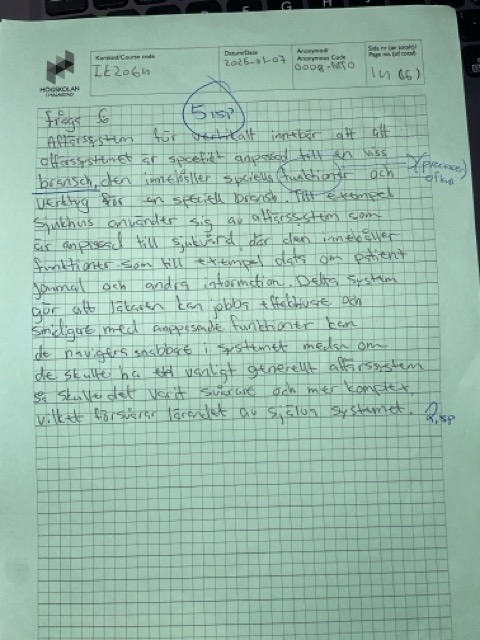 HÖGSKOLAN
I HALMSTAD
Kurskod/Course code
Datum/Date
Anonymkod/
Anonymous Code
Sida nr (av totalt)/
Page no. (of total)
2026-01-07
0008-MTO
fråga 6
5,5p
Affärssystem för vertikalt innebär att att
affärssystemet är specifikt anpassad till en viss
bransch, den innehåller speciella funktioner och
verktyg för en speciell bransh. Till exempel
Sjukhus använder sig av affärssystem som
är anpassad till sjukvård, där den innehåller
funktioner som till exempel data om patient
journal och andra information. Detta system
gör att läkaren kan jobba effektivare och
smidigare med anpassade funktioner kan
de navigera snabbare i systemet medan om
de skulle ha ett vanligt generellt affärssystem
så skulle det varit svårare och mer komplex,
vilket försvårar lärandet av själva systemet.
2,5p